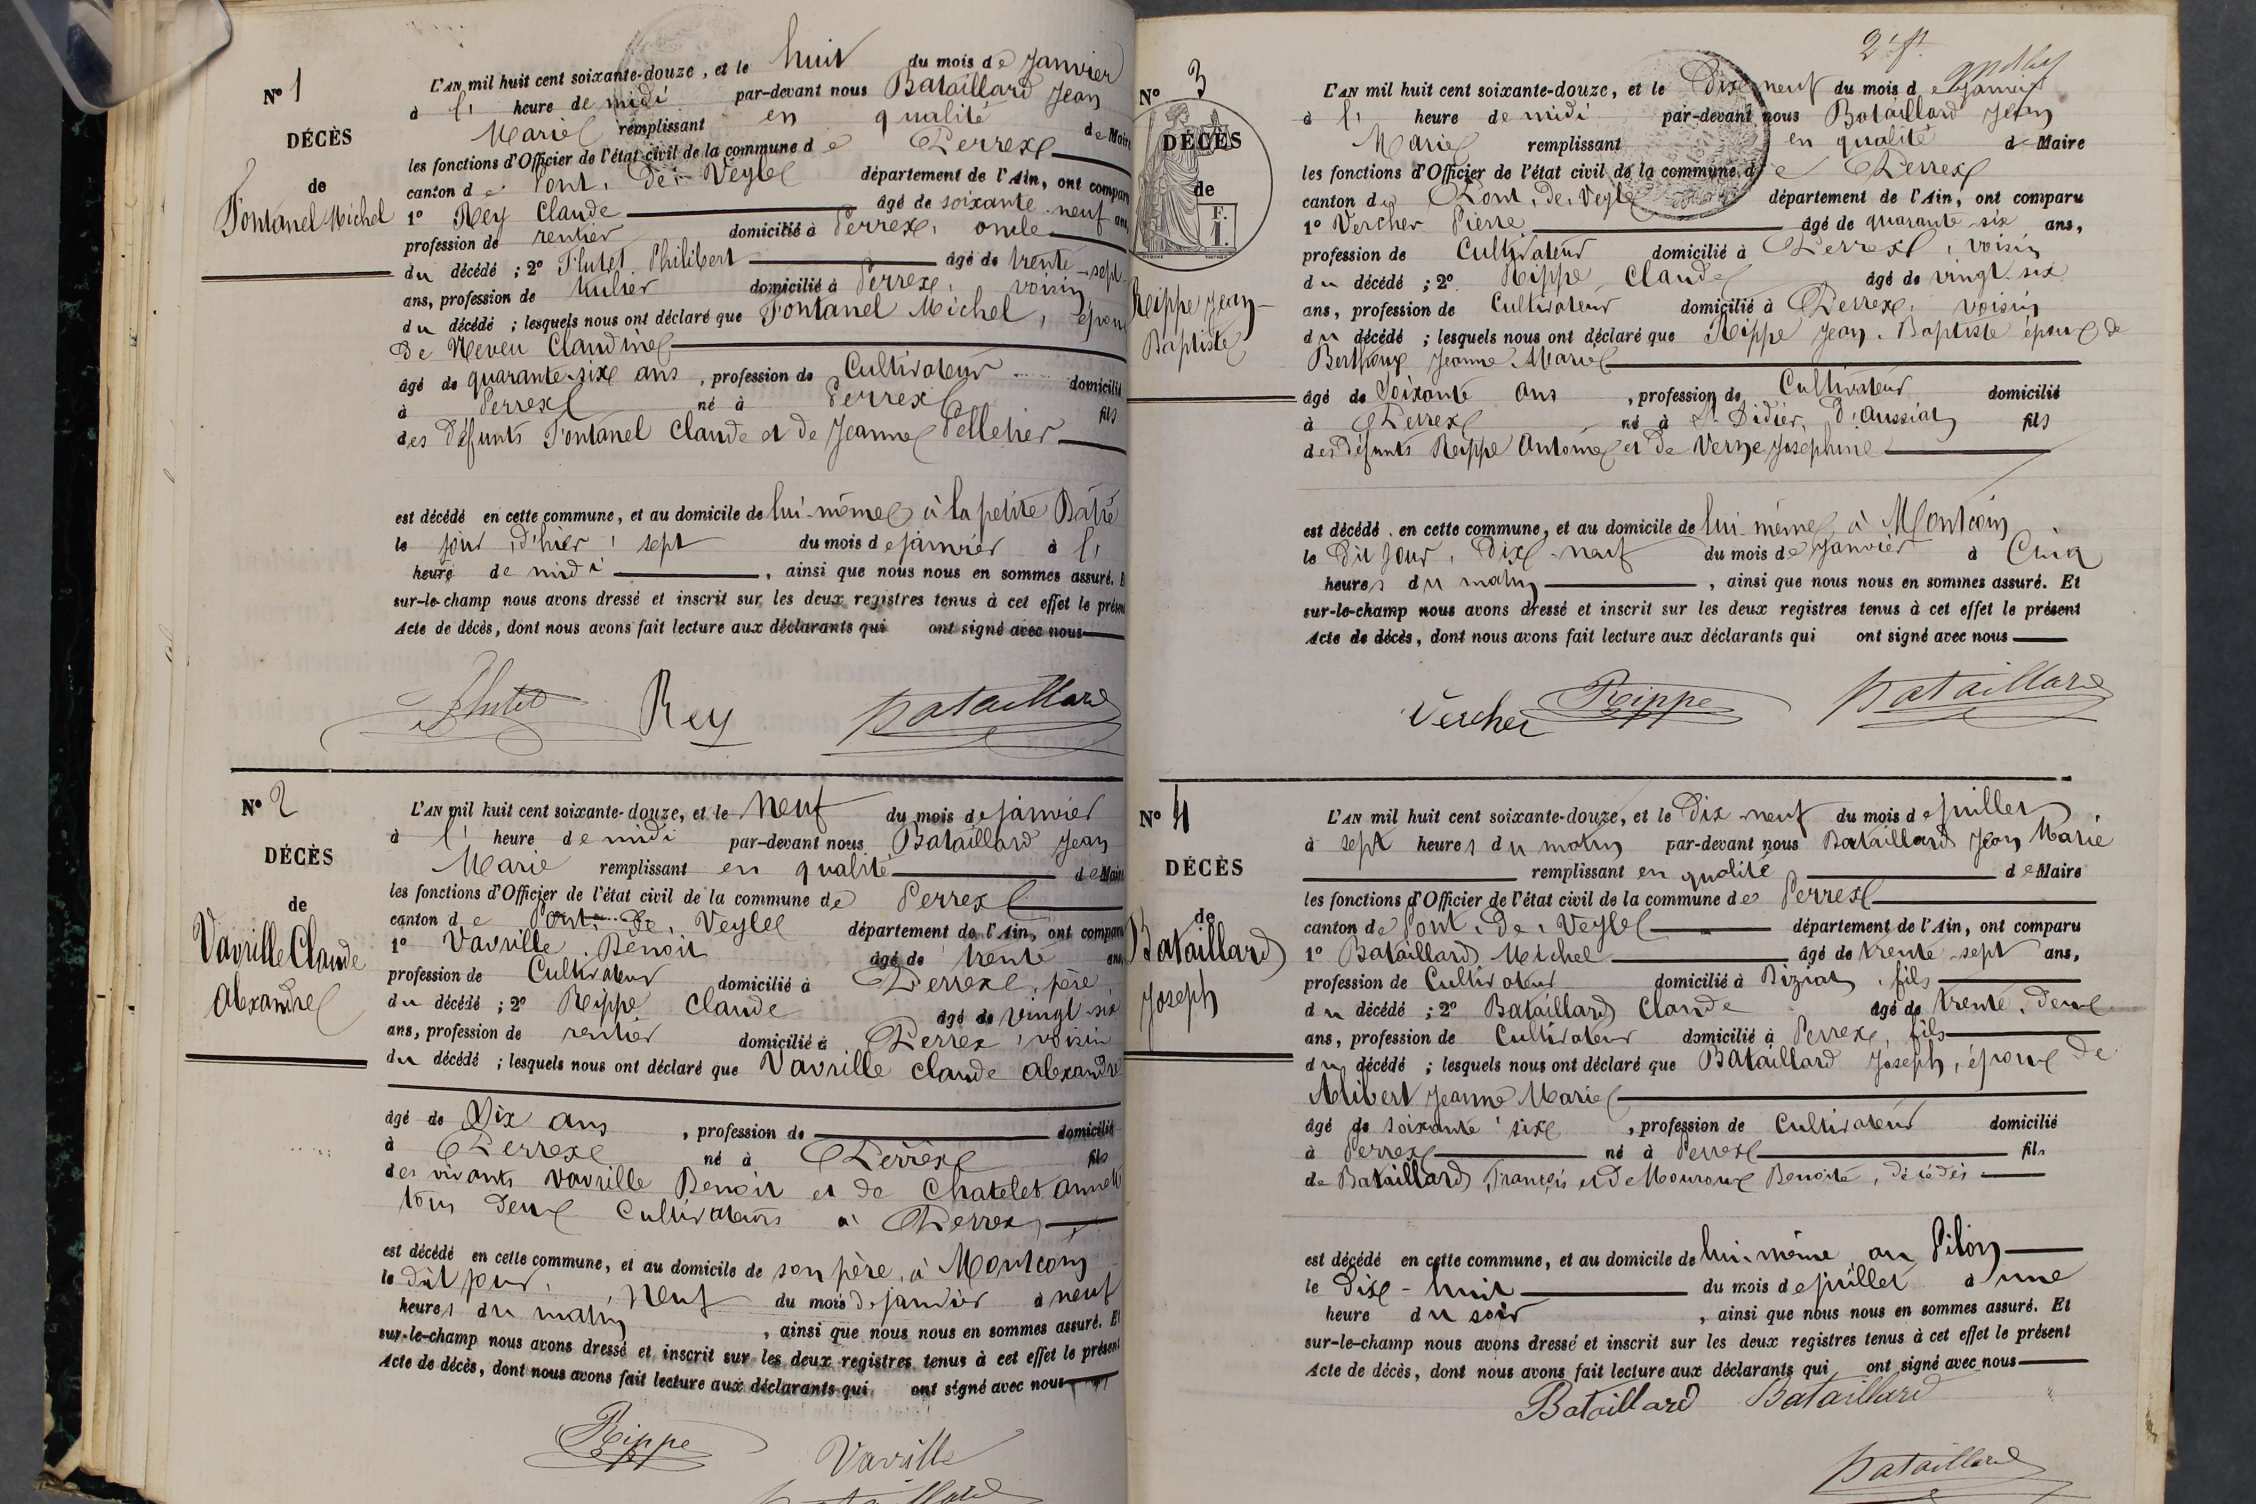 N° 1
DÉCÈS
de
Fontanel Michel
L'AN mil huit cent soixante-douze, et le huit du mois de janvier
à l' heure de midi par-devant nous Bataillard Jean
Marie remplissant en qualité de Maire
les fonctions d'Officier de l'état civil de la commune de Perrex
canton de Pont, de, Veyle département de l'Ain, ont compar
1° Rey Claude âgé de soixante-neuf ans
profession de rentier domicilié à Perrex, oncle
du décédé ; 2° Flutet Philibert âgé de trente-sept
ans, profession de domicilié à Perrex, voisin
du décédé ; lesquels nous ont déclaré que Fontanel Michel, époux
de Neveu Claudine
âgé de quarante-six ans, profession de Cultivateur domicilié
à Perrex né à Perrex fils
des défunts Fontanel Claude et de Jeanne Pelletier
est décédé en cette commune, et au domicile de lui-même à la petite Bâtie
le jour d'hier, sept du mois de janvier à l'
heure de midi, ainsi que nous nous en sommes assuré. E
sur-le-champ nous avons dressé et inscrit sur les deux registres tenus à cet effet le présent
Acte de décès, dont nous avons fait lecture aux déclarants qui ont signé avec nous
Flutet Rey Bataillard
N° 2
DÉCÈS
de
Vavrille Claude
Alexandre
L'AN mil huit cent soixante-douze, et le Neuf du mois de janvier
à l' heure de midi par-devant nous Bataillard Jean
Marie remplissant en qualité de Maire
les fonctions d'Officier de l'état civil de la commune de Perrex
canton de Pont, de, Veyle département de l'Ain, ont compar
1° Vavrille Benoit âgé de trente ans
profession de Cultivateur domicilié à Perrex, père
du décédé ; 2° Rippe Claude âgé de vingt-six
ans, profession de rentier domicilié à Perrex, voisin
du décédé ; lesquels nous ont déclaré que Vavrille Claude Alexandre
âgé de Dix ans, profession de domicilié
à Perrex né à Perrex fils
des vivants Vavrille Benoit et de Chatelet Annette
tous deux Cultivateurs à Perrex
est décédé en cette commune, et au domicile de son père, à Montcoin
le dit jour, Neuf du mois de janvier à neuf
heures du matin, ainsi que nous nous en sommes assuré. Et
sur-le-champ nous avons dressé et inscrit sur les deux registres tenus à cet effet le présent
Acte de décès, dont nous avons fait lecture aux déclarants qui ont signé avec nous
Rippe Vavrille
Bataillard
N° 3
DÉCÈS
de
F.
1.
Rippe Jean-
Baptiste
L'AN mil huit cent soixante-douze, et le Dix neuf du mois de janvier
à l' heure de midi par-devant nous Bataillard Jean
Marie remplissant en qualité de Maire
les fonctions d'Officier de l'état civil de la commune de Perrex
canton de Pont, de, Veyle département de l'Ain, ont comparu
1° Vercher Pierre âgé de quarante-six ans,
profession de Cultivateur domicilié à Perrex, voisin
du décédé ; 2° Rippe Claude âgé de vingt-six
ans, profession de Cultivateur domicilié à Perrex, voisin
du décédé ; lesquels nous ont déclaré que Rippe Jean-Baptiste époux de
Berthoux Jeanne Marie
âgé de Soixante ans, profession de Cultivateur domicilié
à Perrex né à St Didier, d'aussiat fils
des défunts Rippe Antoine et de Verne Josephine
est décédé en cette commune, et au domicile de lui-même, à Montcoin
le Dit jour, Dix-neuf du mois de janvier à Cinq
heures du matin, ainsi que nous nous en sommes assuré. Et
sur-le-champ nous avons dressé et inscrit sur les deux registres tenus à cet effet le présent
Acte de décès, dont nous avons fait lecture aux déclarants qui ont signé avec nous
Vercher Rippe Bataillard
N° 4
DÉCÈS
de
Bataillard
Joseph
L'AN mil huit cent soixante-douze, et le Dix-neuf du mois de juillet
à sept heures du matin par-devant nous Bataillard Jean Marie
remplissant en qualité de Maire
les fonctions d'Officier de l'état civil de la commune de Perrex
canton de Pont, de, Veyle département de l'Ain, ont comparu
1° Bataillard Michel âgé de trente-sept ans,
profession de Cultivateur domicilié à Biziat, fils
du décédé ; 2° Bataillard Claude âgé de trente, deux
ans, profession de Cultivateur domicilié à Perrex, fils
du décédé ; lesquels nous ont déclaré que Bataillard Joseph, époux de
Alibert Jeanne Marie
âgé de soixante six, profession de Cultivateur domicilié
à Perrex né à Perrex fils
de Bataillard François et de Mouroux Benoite, décédés
est décédé en cette commune, et au domicile de lui-même au Pilon
le Dix-huit du mois de juillet à une
heure du soir, ainsi que nous nous en sommes assuré. Et
sur-le-champ nous avons dressé et inscrit sur les deux registres tenus à cet effet le présent
Acte de décès, dont nous avons fait lecture aux déclarants qui ont signé avec nous
Bataillard Bataillard
Bataillard